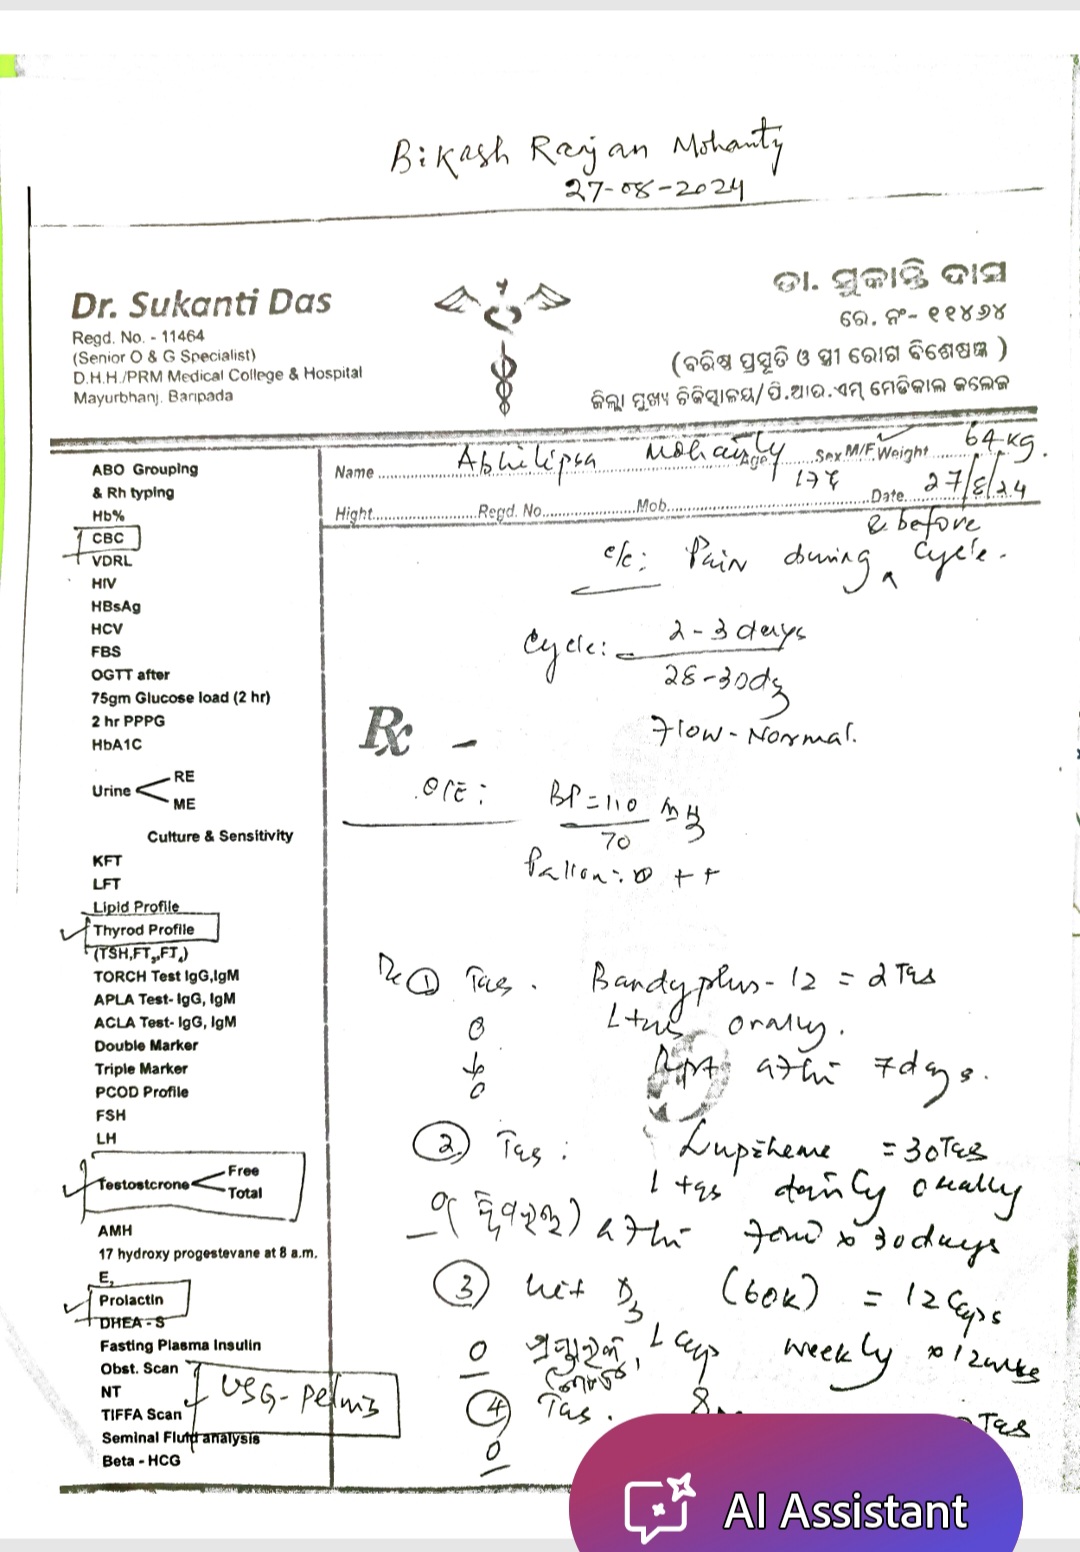 Bikash Ranjan Mohanty
27-08-2024
Dr. Sukanti Das
Regd. No. - 11464
(Senior O & G Specialist)
D.H.H./PRM Medical College & Hospital
Mayurbhanj. Baripada
ଡା. ସୁକାନ୍ତି ଦାସ
ରେ. ନଂ- ୧୧୪୬୪
(ବରିଷ୍ଠ ପ୍ରସୂତି ଓ ସ୍ତ୍ରୀ ରୋଗ ବିଶେଷଜ୍ଞ)
ଜିଲ୍ଲା ମୁଖ୍ୟ ଚିକିତ୍ସାଳୟ/ପି.ଆର.ଏମ୍ ମେଡିକାଲ କଲେଜ
Name Abhilipsa Mohanty Age Sex M/F Weight 64 kg.
Hight Regd. No. Mob. Date 27/8/24
ABO Grouping
& Rh typing
Hb%
CBC
VDRL
HIV
HBsAg
HCV
FBS
OGTT after
75gm Glucose load (2 hr)
2 hr PPPG
HbA1C
Urine RE
ME
Culture & Sensitivity
KFT
LFT
Lipid Profile
Thyrod Profile
(TSH,FT3,FT4)
TORCH Test IgG,IgM
APLA Test- IgG, IgM
ACLA Test- IgG, IgM
Double Marker
Triple Marker
PCOD Profile
FSH
LH
Testostcrone Free
Total
AMH
17 hydroxy progestevane at 8 a.m.
E2
Prolactin
DHEA - S
Fasting Plasma Insulin
Obst. Scan
NT
TIFFA Scan
Seminal Fluid analysis
Beta - HCG
USG- Pelvis
& before
c/c: Pain during cycle.
Cycle: 2-3 days
28-30dy
Flow - Normal.
Rx
O/E: BP = 110
70
++
Rx ① Tab. Bandyplus-12 = 2 Tab
orally.
Rpt after 7 days.
② Tab: = 30 Tab
1 tab daily orally
after food x 30 days
③ D3 (60K) = 12 Caps
1 Cap weekly x 12 wks
④ Tab. Tab
AI Assistant